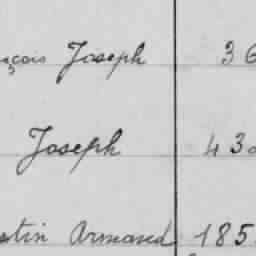 çois Joseph 36
Joseph 430
stin Armand 185